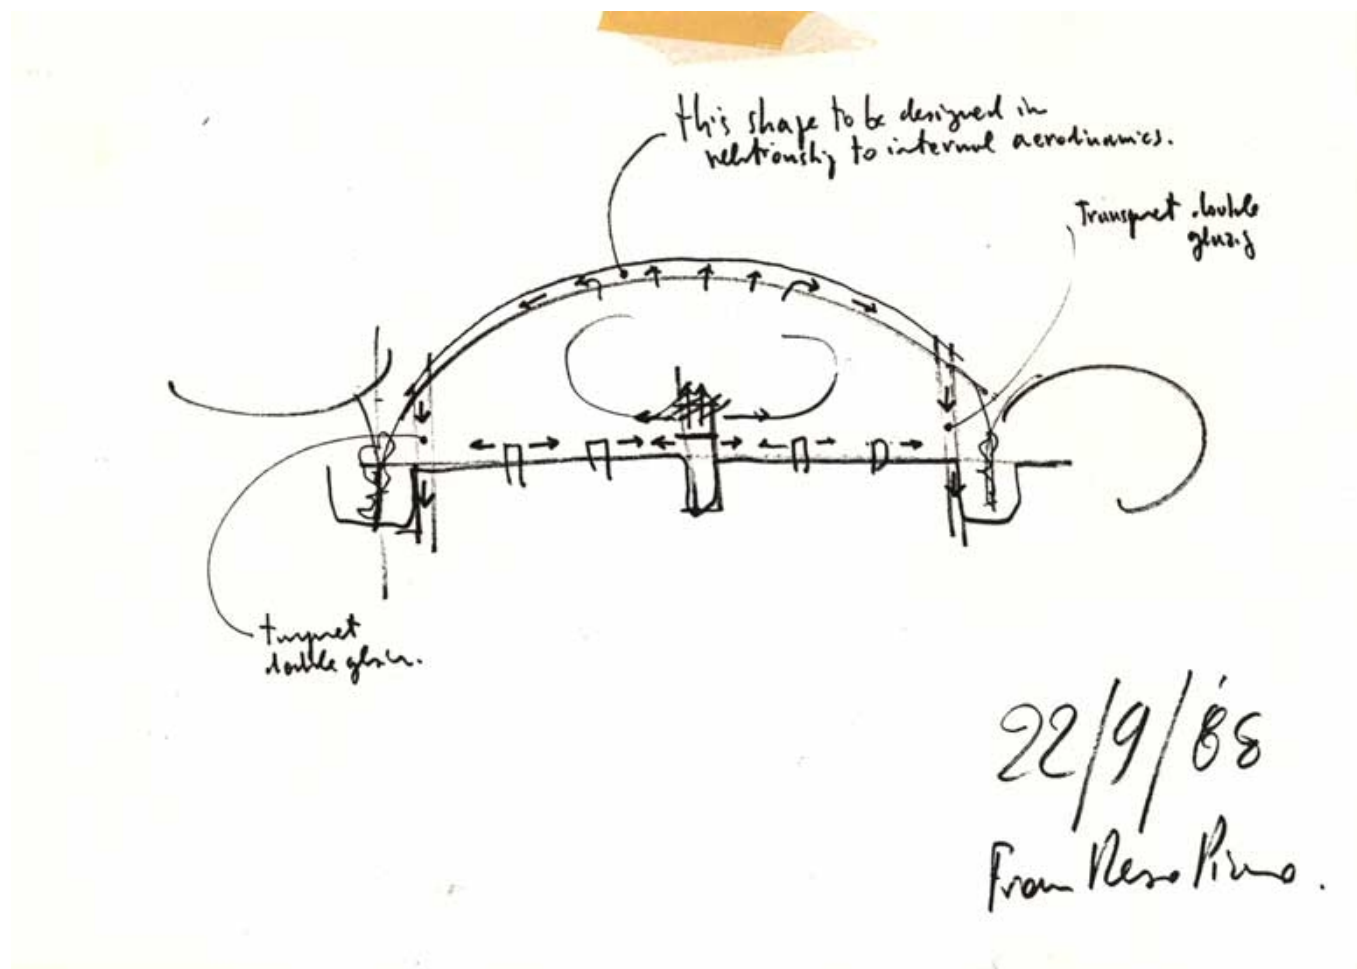 this shape to be designed in
relationship to internal aerodinamics.
Transpnet double
glazing
double
22/9/'88
From Renzo Piano.